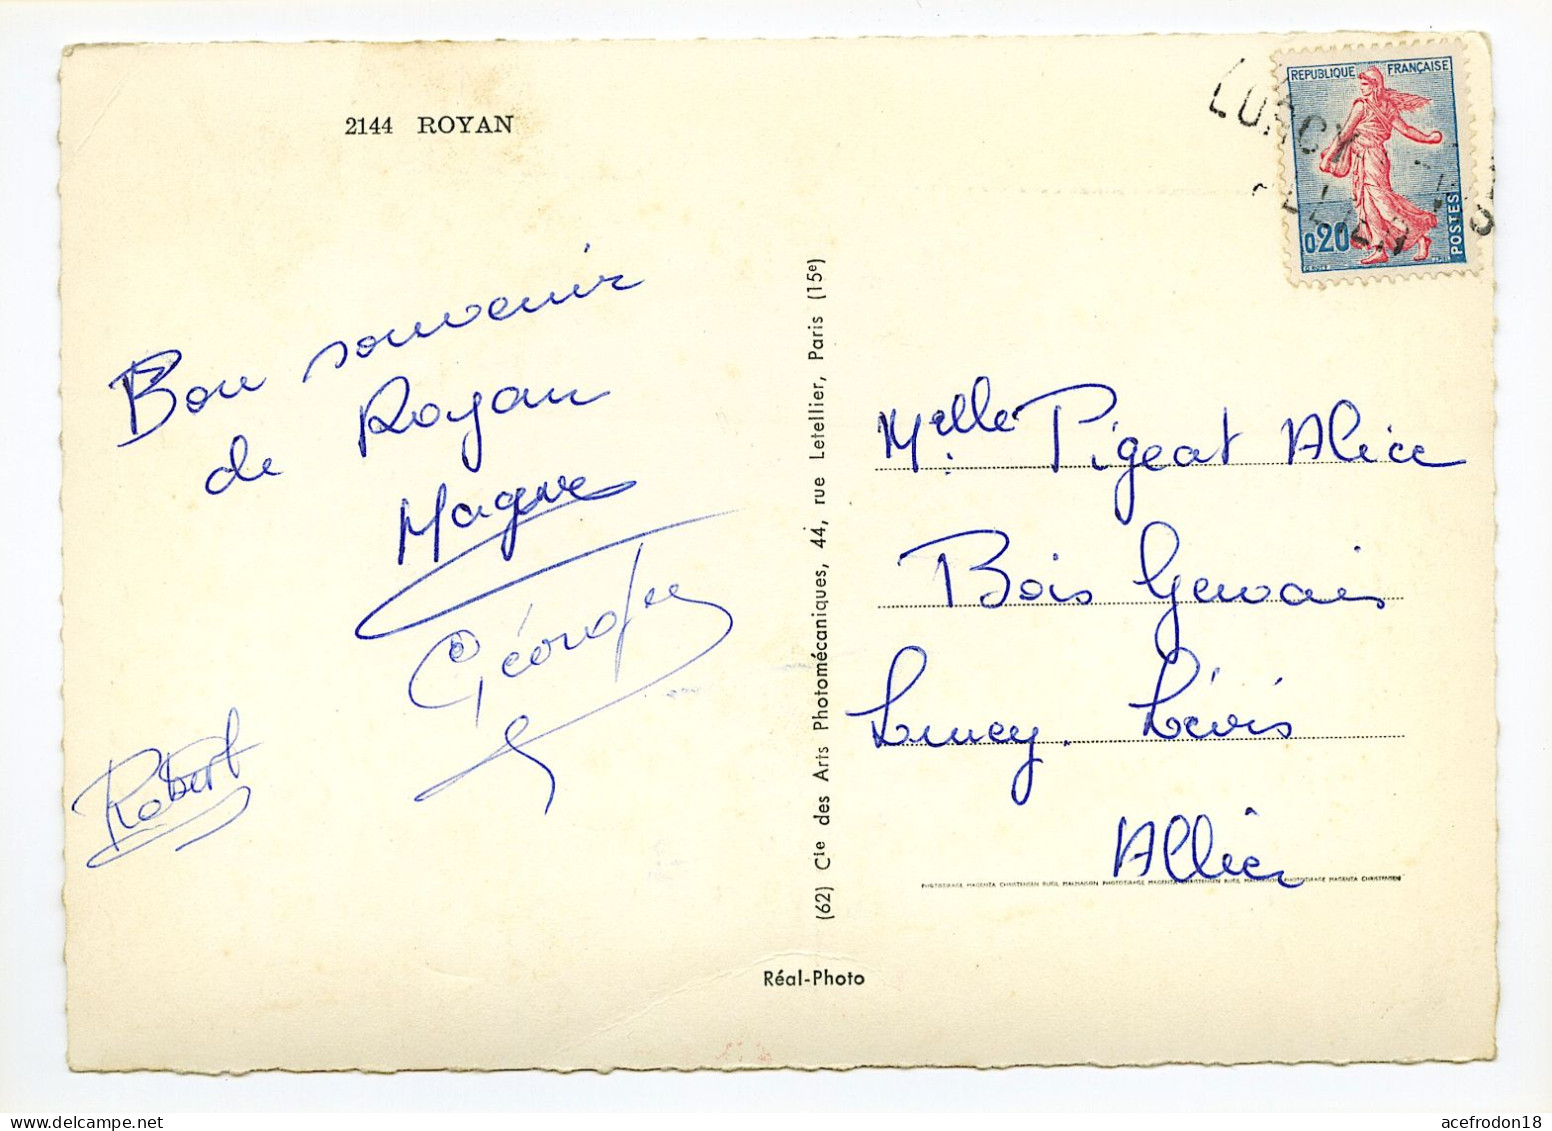 2144 ROYAN
Bon souvenir
de Royan
Robert
(62) Cie des Arts Photomécaniques, 44, rue Letellier, Paris (15e)
REPUBLIQUE FRANÇAISE
0,20
POSTES
LURCY
Melle Pigeat Alice
Bois Gervais
Lurcy. Lévis
Allier
PHOTOTIRAGE MAGENTA CHRISTENSEN RUEIL MALMAISON PHOTOTIRAGE MAGENTA CHRISTENSEN RUEIL MALMAISON PHOTOTIRAGE MAGENTA CHRISTENSEN
Réal-Photo
acefrodon18